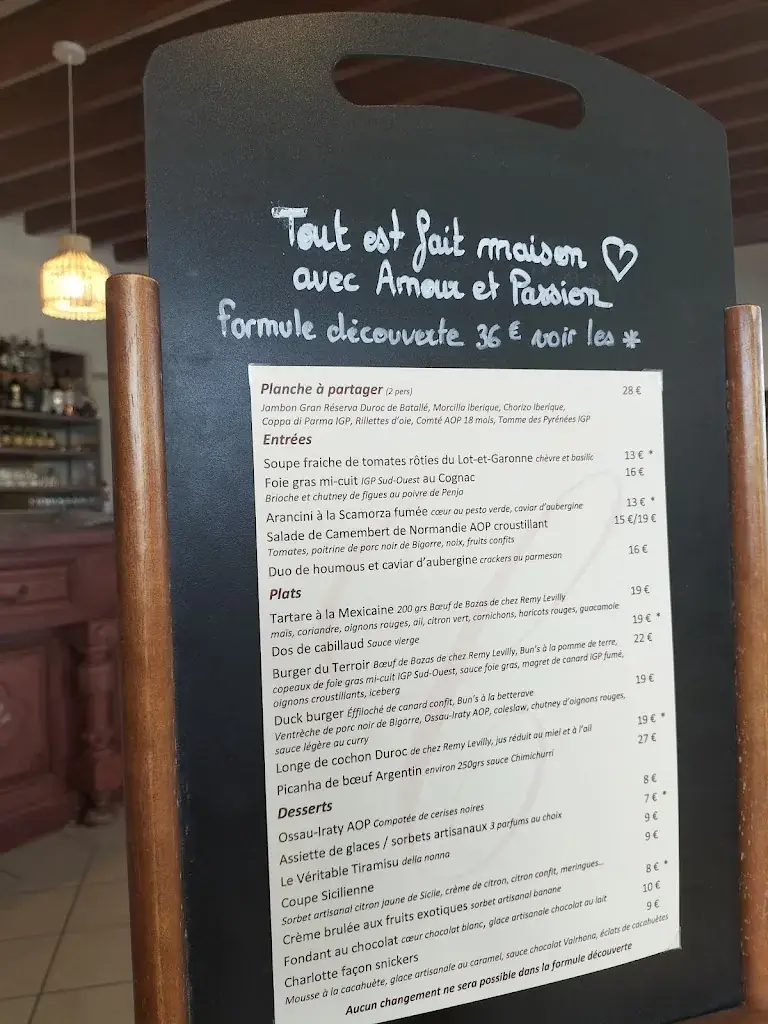 Tout est fait maison ♡
avec Amour et Passion
formule découverte 36 € voir les *
Planche à partager (2 pers) 28 €
Jambon Gran Réserva Duroc de Batallé, Morcilla Iberique, Chorizo Iberique,
Coppa di Parma IGP, Rillettes d'oie, Comté AOP 18 mois, Tomme des Pyrénées IGP
Entrées
Soupe fraiche de tomates rôties du Lot-et-Garonne chèvre et basilic 13 € *
Foie gras mi-cuit IGP Sud-Ouest au Cognac 16 €
Brioche et chutney de figues au poivre de Penja
Arancini à la Scamorza fumée cœur au pesto verde, caviar d'aubergine 13 € *
Salade de Camembert de Normandie AOP croustillant 15 €/19 €
Tomates, poitrine de porc noir de Bigorre, noix, fruits confits
Duo de houmous et caviar d'aubergine crackers au parmesan 16 €
Plats
Tartare à la Mexicaine 200 grs Bœuf de Bazas de chez Remy Levilly 19 €
mais, coriandre, oignons rouges, ail, citron vert, cornichons, haricots rouges, guacamole
Dos de cabillaud Sauce vierge 19 € *
Burger du Terroir Bœuf de Bazas de chez Remy Levilly, Bun's à la pomme de terre, 22 €
copeaux de foie gras mi-cuit IGP Sud-Ouest, sauce foie gras, magret de canard IGP fumé,
oignons croustillants, iceberg
Duck burger Effiloché de canard confit, Bun's à la betterave 19 €
Ventrèche de porc noir de Bigorre, Ossau-Iraty AOP, coleslaw, chutney d'oignons rouges,
sauce légère au curry
Longe de cochon Duroc de chez Remy Levilly, jus réduit au miel et à l'ail 19 € *
Picanha de bœuf Argentin environ 250grs sauce Chimichurri 27 €
Desserts
Ossau-Iraty AOP Compotée de cerises noires 8 €
Assiette de glaces / sorbets artisanaux 3 parfums au choix 7 € *
Le Véritable Tiramisu della nonna 9 €
Coupe Sicilienne 9 €
Sorbet artisanal citron jaune de Sicile, crème de citron, citron confit, meringues...
Crème brulée aux fruits exotiques sorbet artisanal banane 8 € *
Fondant au chocolat cœur chocolat blanc, glace artisanale chocolat au lait 10 €
Charlotte façon snickers 9 €
Mousse à la cacahuète, glace artisanale au caramel, sauce chocolat Valrhona, éclats de cacahuètes
Aucun changement ne sera possible dans la formule découverte